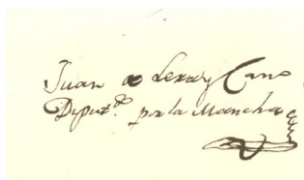 Juan de Lera y Cano
Diput.do por la Mancha